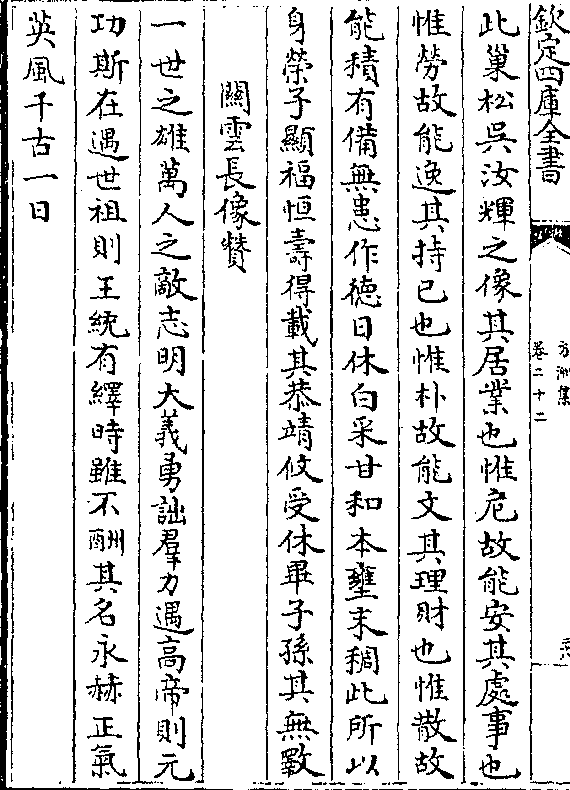 欽定四庫全書
方洲集
卷二十二
此巢松吳汝輝之像其居業也惟危故能安其處事也
惟勞故能逸其持已也惟朴故能文其理財也惟散故
能積有備無患作德日休白采甘和本壅末稠此所以
身榮子顯福恒壽得載其恭靖攸受休畢子孫其無斁
關雲長像贊
一世之雄萬人之敵志明大義勇詘羣力遇高帝則元
功斯在遇世祖則王統有繹時雖不酬其名永赫正氣
英風千古一日